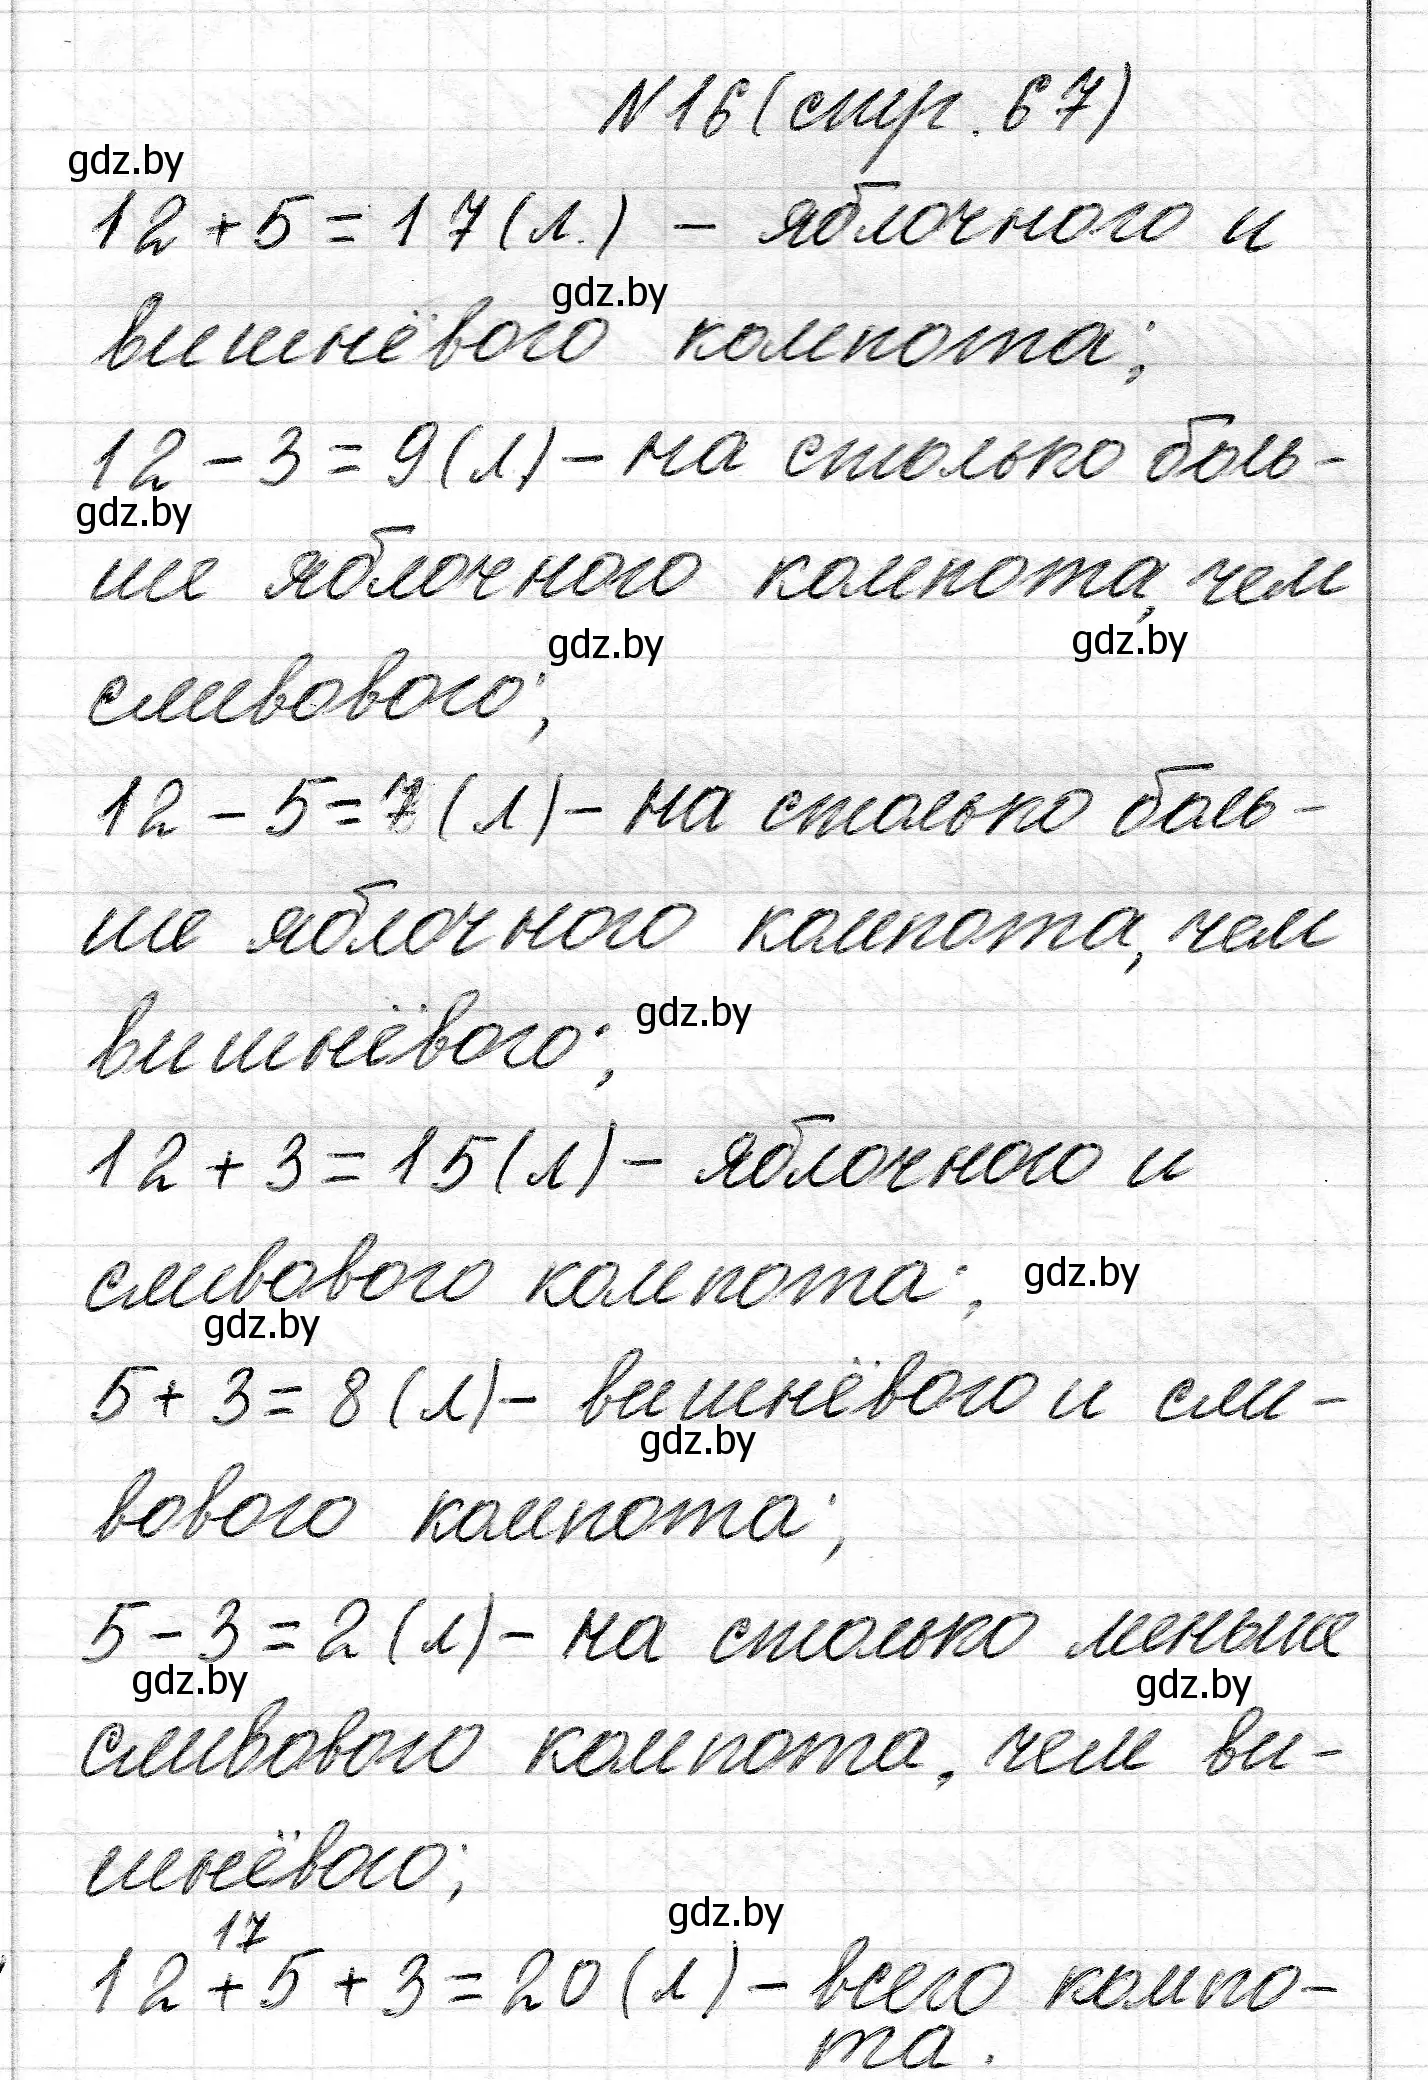 N16 (стр. 67)
gdz.by
12 + 5 = 17 (л.) - яблочного и
gdz.by
вишнёвого компота;
12 - 3 = 9 (л) - на столько боль-
gdz.by
ше яблочного компота, чем
gdz.by gdz.by
сливового;
12 - 5 = 7 (л) - на столько боль-
ше яблочного компота, чем
gdz.by
вишнёвого;
12 + 3 = 15 (л) - яблочного и
сливового компота; gdz.by
gdz.by
5 + 3 = 8 (л) - вишнёвого и сли-
gdz.by
вового компота;
5 - 3 = 2 (л) - на столько меньше
gdz.by gdz.by
сливового компота, чем ви-
шнёвого;
17 gdz.by
12 + 5 + 3 = 20 (л) - всего компо-
та.